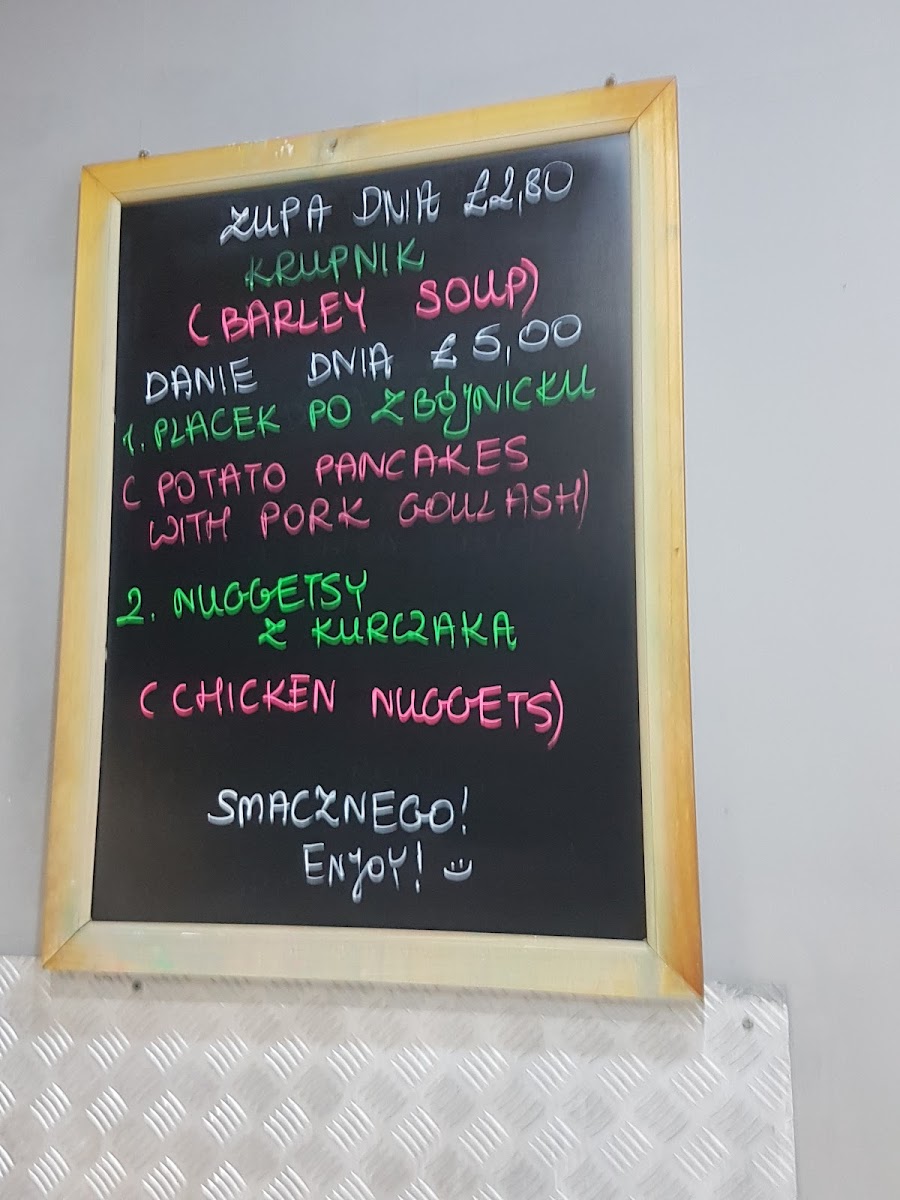 ZUPA DNIA £2,80
KRUPNIK
(BARLEY SOUP)
DANIE DNIA £5,00
1. PLACEK PO ZBÓJNICKU
(POTATO PANCAKES
WITH PORK GOULASH)
2. NUGGETSY
Z KURCZAKA
(CHICKEN NUGGETS)
SMACZNEGO!
ENJOY!